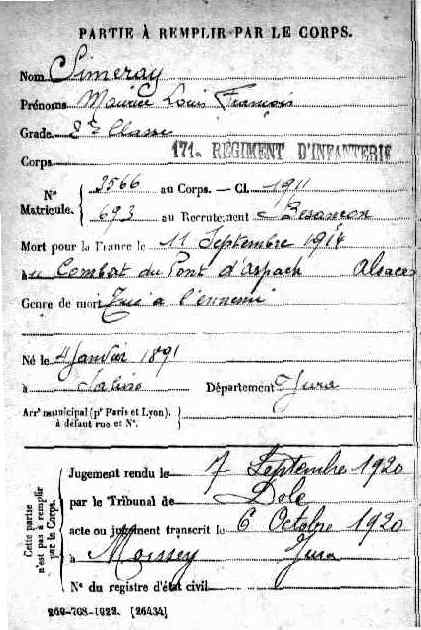 PARTIE À REMPLIR PAR LE CORPS.
Nom Simeray
Prénoms Maurice Louis François
Grade 2e Classe
Corps 171e RÉGIMENT D'INFANTERIE
N° Matricule. { 3566 au Corps. — Cl. 1911
693 au Recrutement Besançon
Mort pour la France le 11 Septembre 1914
à au Combat du Pont d'Aspach Alsace
Genre de mort Tué à l'ennemi
Né le 4 Janvier 1891
à Salins Département Jura
Arrt municipal (pr Paris et Lyon),
à défaut rue et N°.
Cette partie n'est pas à remplir par le Corps.
Jugement rendu le 7 Septembre 1920
par le Tribunal de Dole
acte ou jugement transcrit le 6 Octobre 1920
à Moissey Jura
N° du registre d'état civil
269-708-1922. [26434]